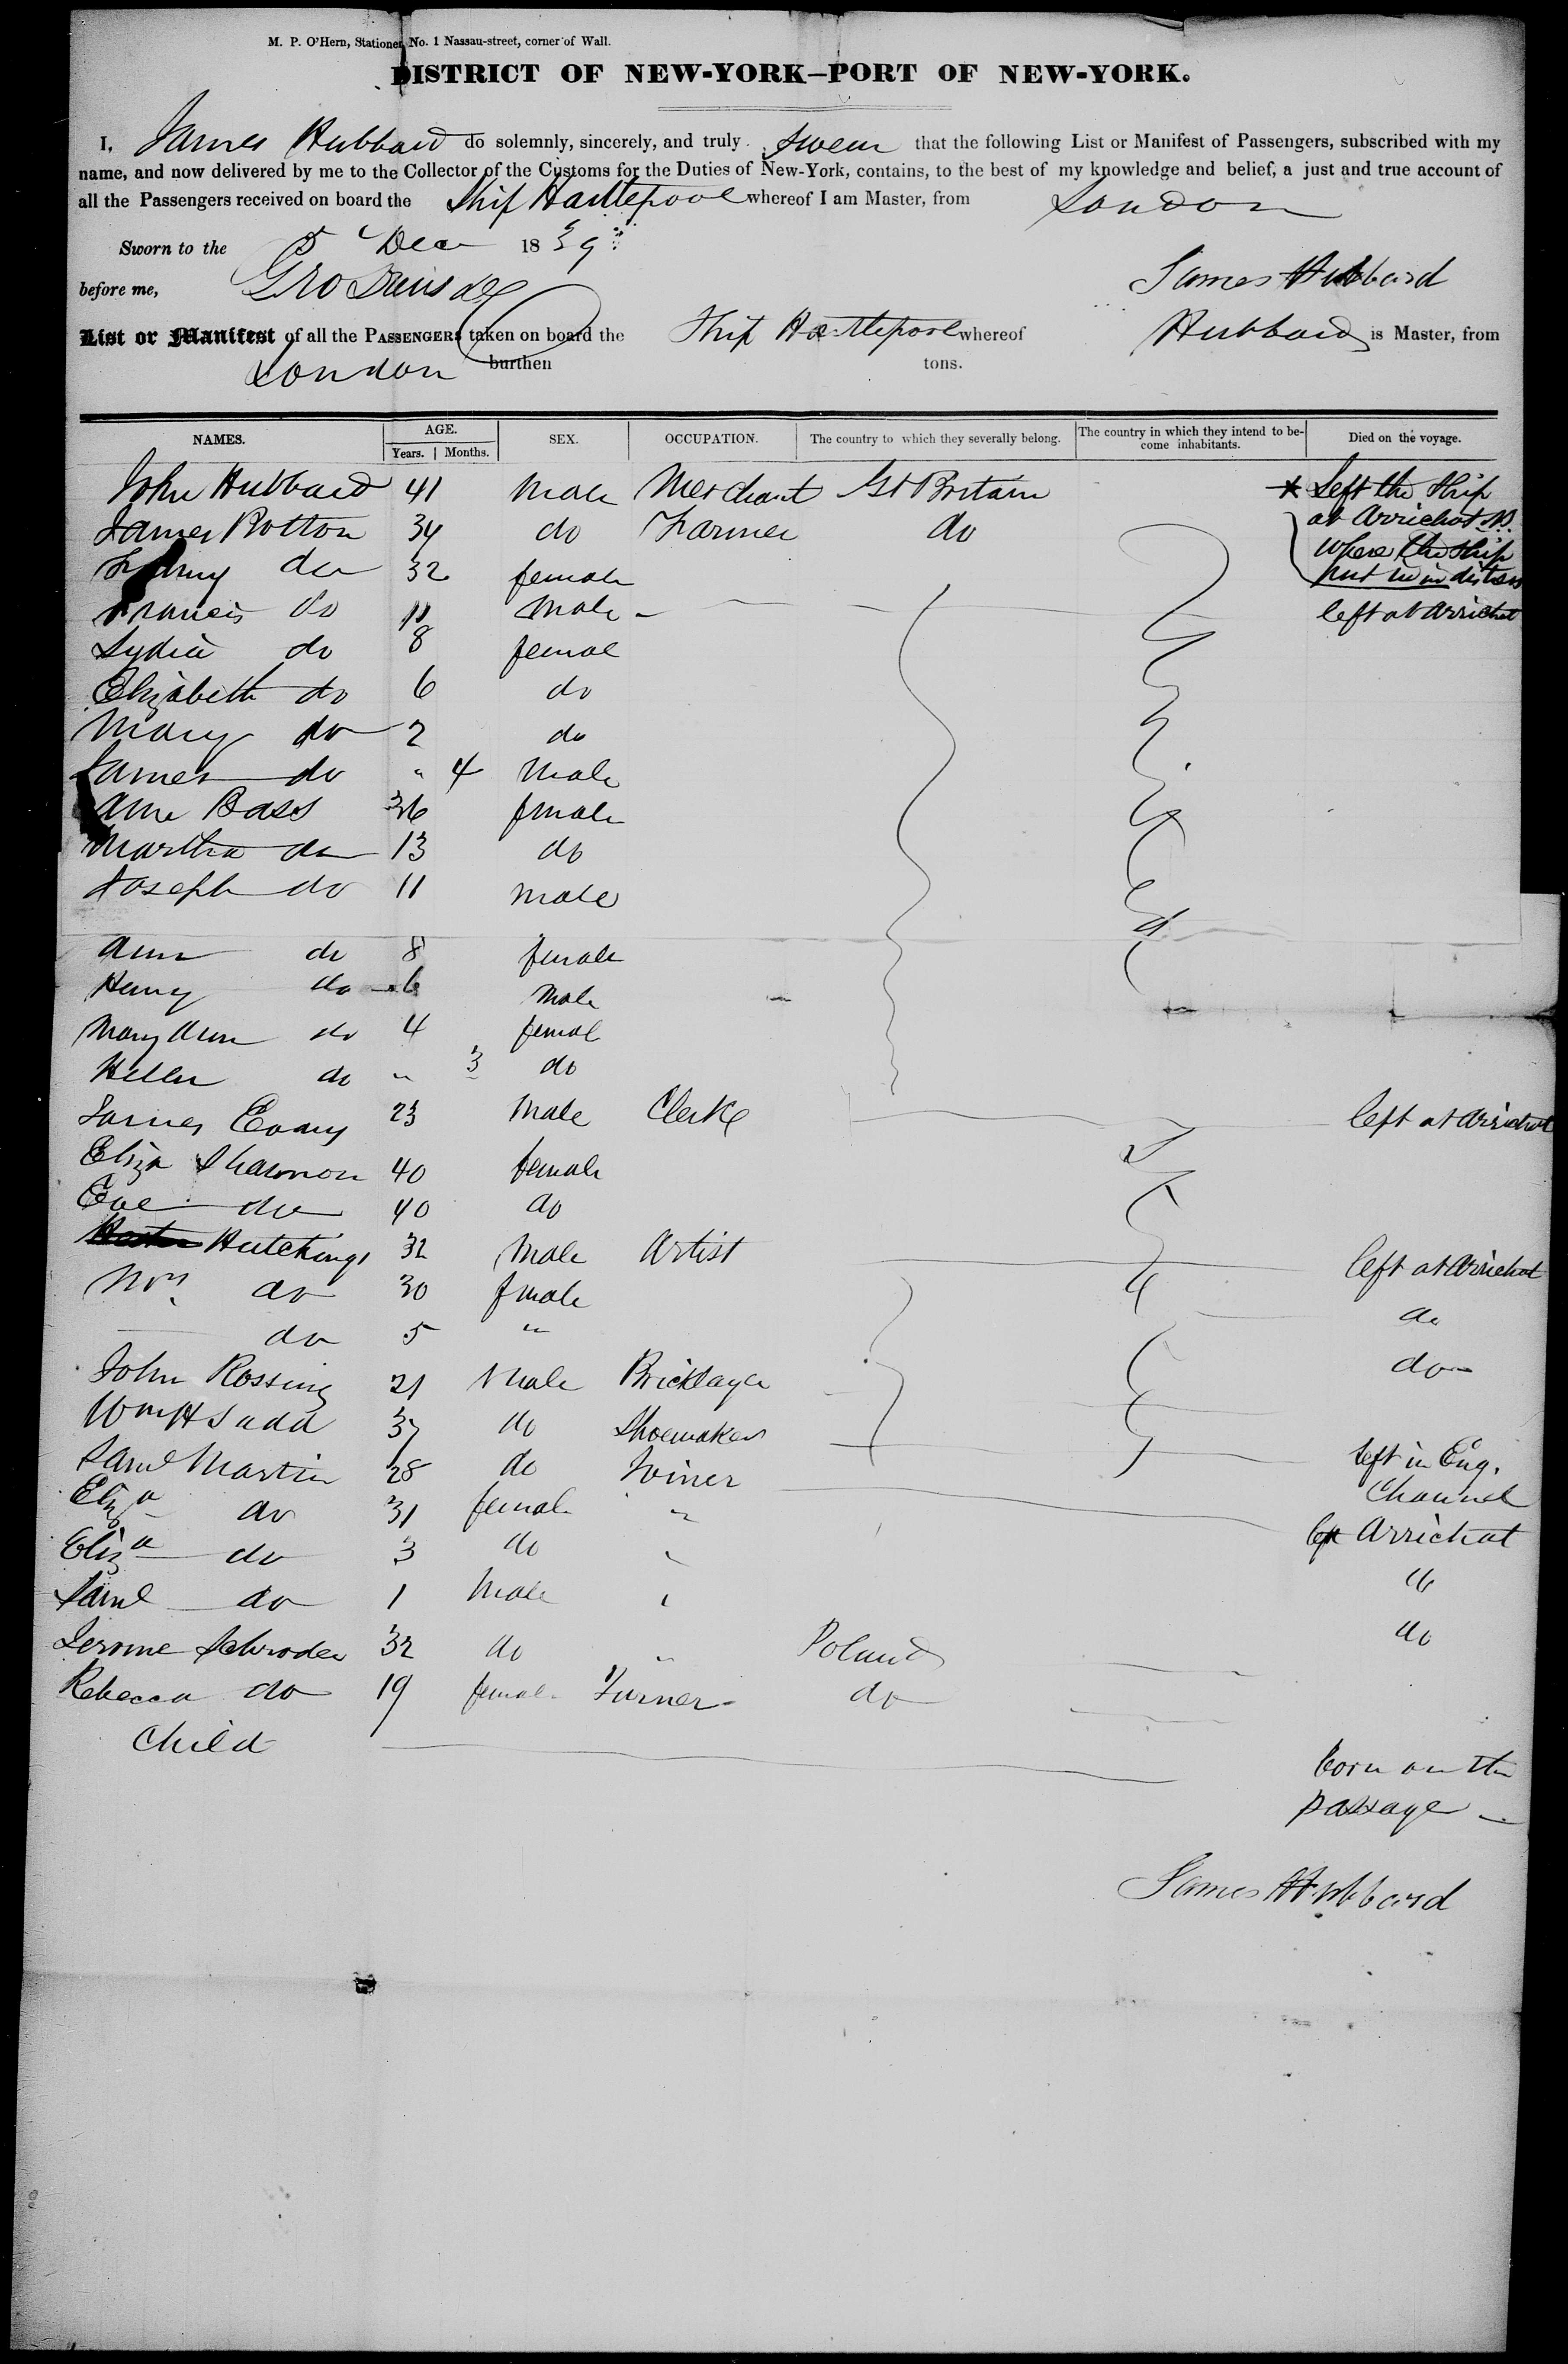 M. P. O'Hern, Stationer, No. 1 Nassau-street, corner of Wall.
DISTRICT OF NEW-YORK—PORT OF NEW-YORK.
I, James Hubbard do solemnly, sincerely, and truly swear that the following List or Manifest of Passengers, subscribed with my
name, and now delivered by me to the Collector of the Customs for the Duties of New-York, contains, to the best of my knowledge and belief, a just and true account of
all the Passengers received on board the Ship Hartlepool whereof I am Master, from London
Sworn to the 5 Dec 1839
before me, James Hubbard
List or Manifest of all the PASSENGERS taken on board the Ship Hartlepool whereof Hubbard is Master, from
London burthen tons.
NAMES. AGE. Years. Months. SEX. OCCUPATION. The country to which they severally belong. The country in which they intend to become inhabitants. Died on the voyage.
John Hubbard 41 Male Merchant Gt Britain * Left the Ship
James Botton 34 do Farmer do at Arrichat
do 32 female where the ship
put in in distress
Francis do 11 Male left at Arrichat
Lydia do 8 female
Elizabeth do 6 do
Mary do 2 do
James do " 4 Male
Ann Bass 36 female
Martha do 13 do
Joseph do 11 Male
Ann do 8 female
Henry do 6 Male
Mary Ann do 4 female
Hellen do " 3 do
James Evans 23 Male Clerk left at Arrichat
Eliza Shannon 40 female
Eve do 40 do
Hutchings 32 Male Artist left at Arrichat
Mrs do 30 female do
do 5 " do
John Rossing 21 Male Bricklayer
Wm H Ladd 37 do Shoemaker left in Eng.
Channel
Saml Martin 28 do Joiner left Arrichat
Eliza do 31 female " "
Eliza do 3 do " do
Saml do 1 Male "
Jerome Schroder 32 do " Poland
Rebecca do 19 female Turner do
Child born on the
passage
James Hubbard